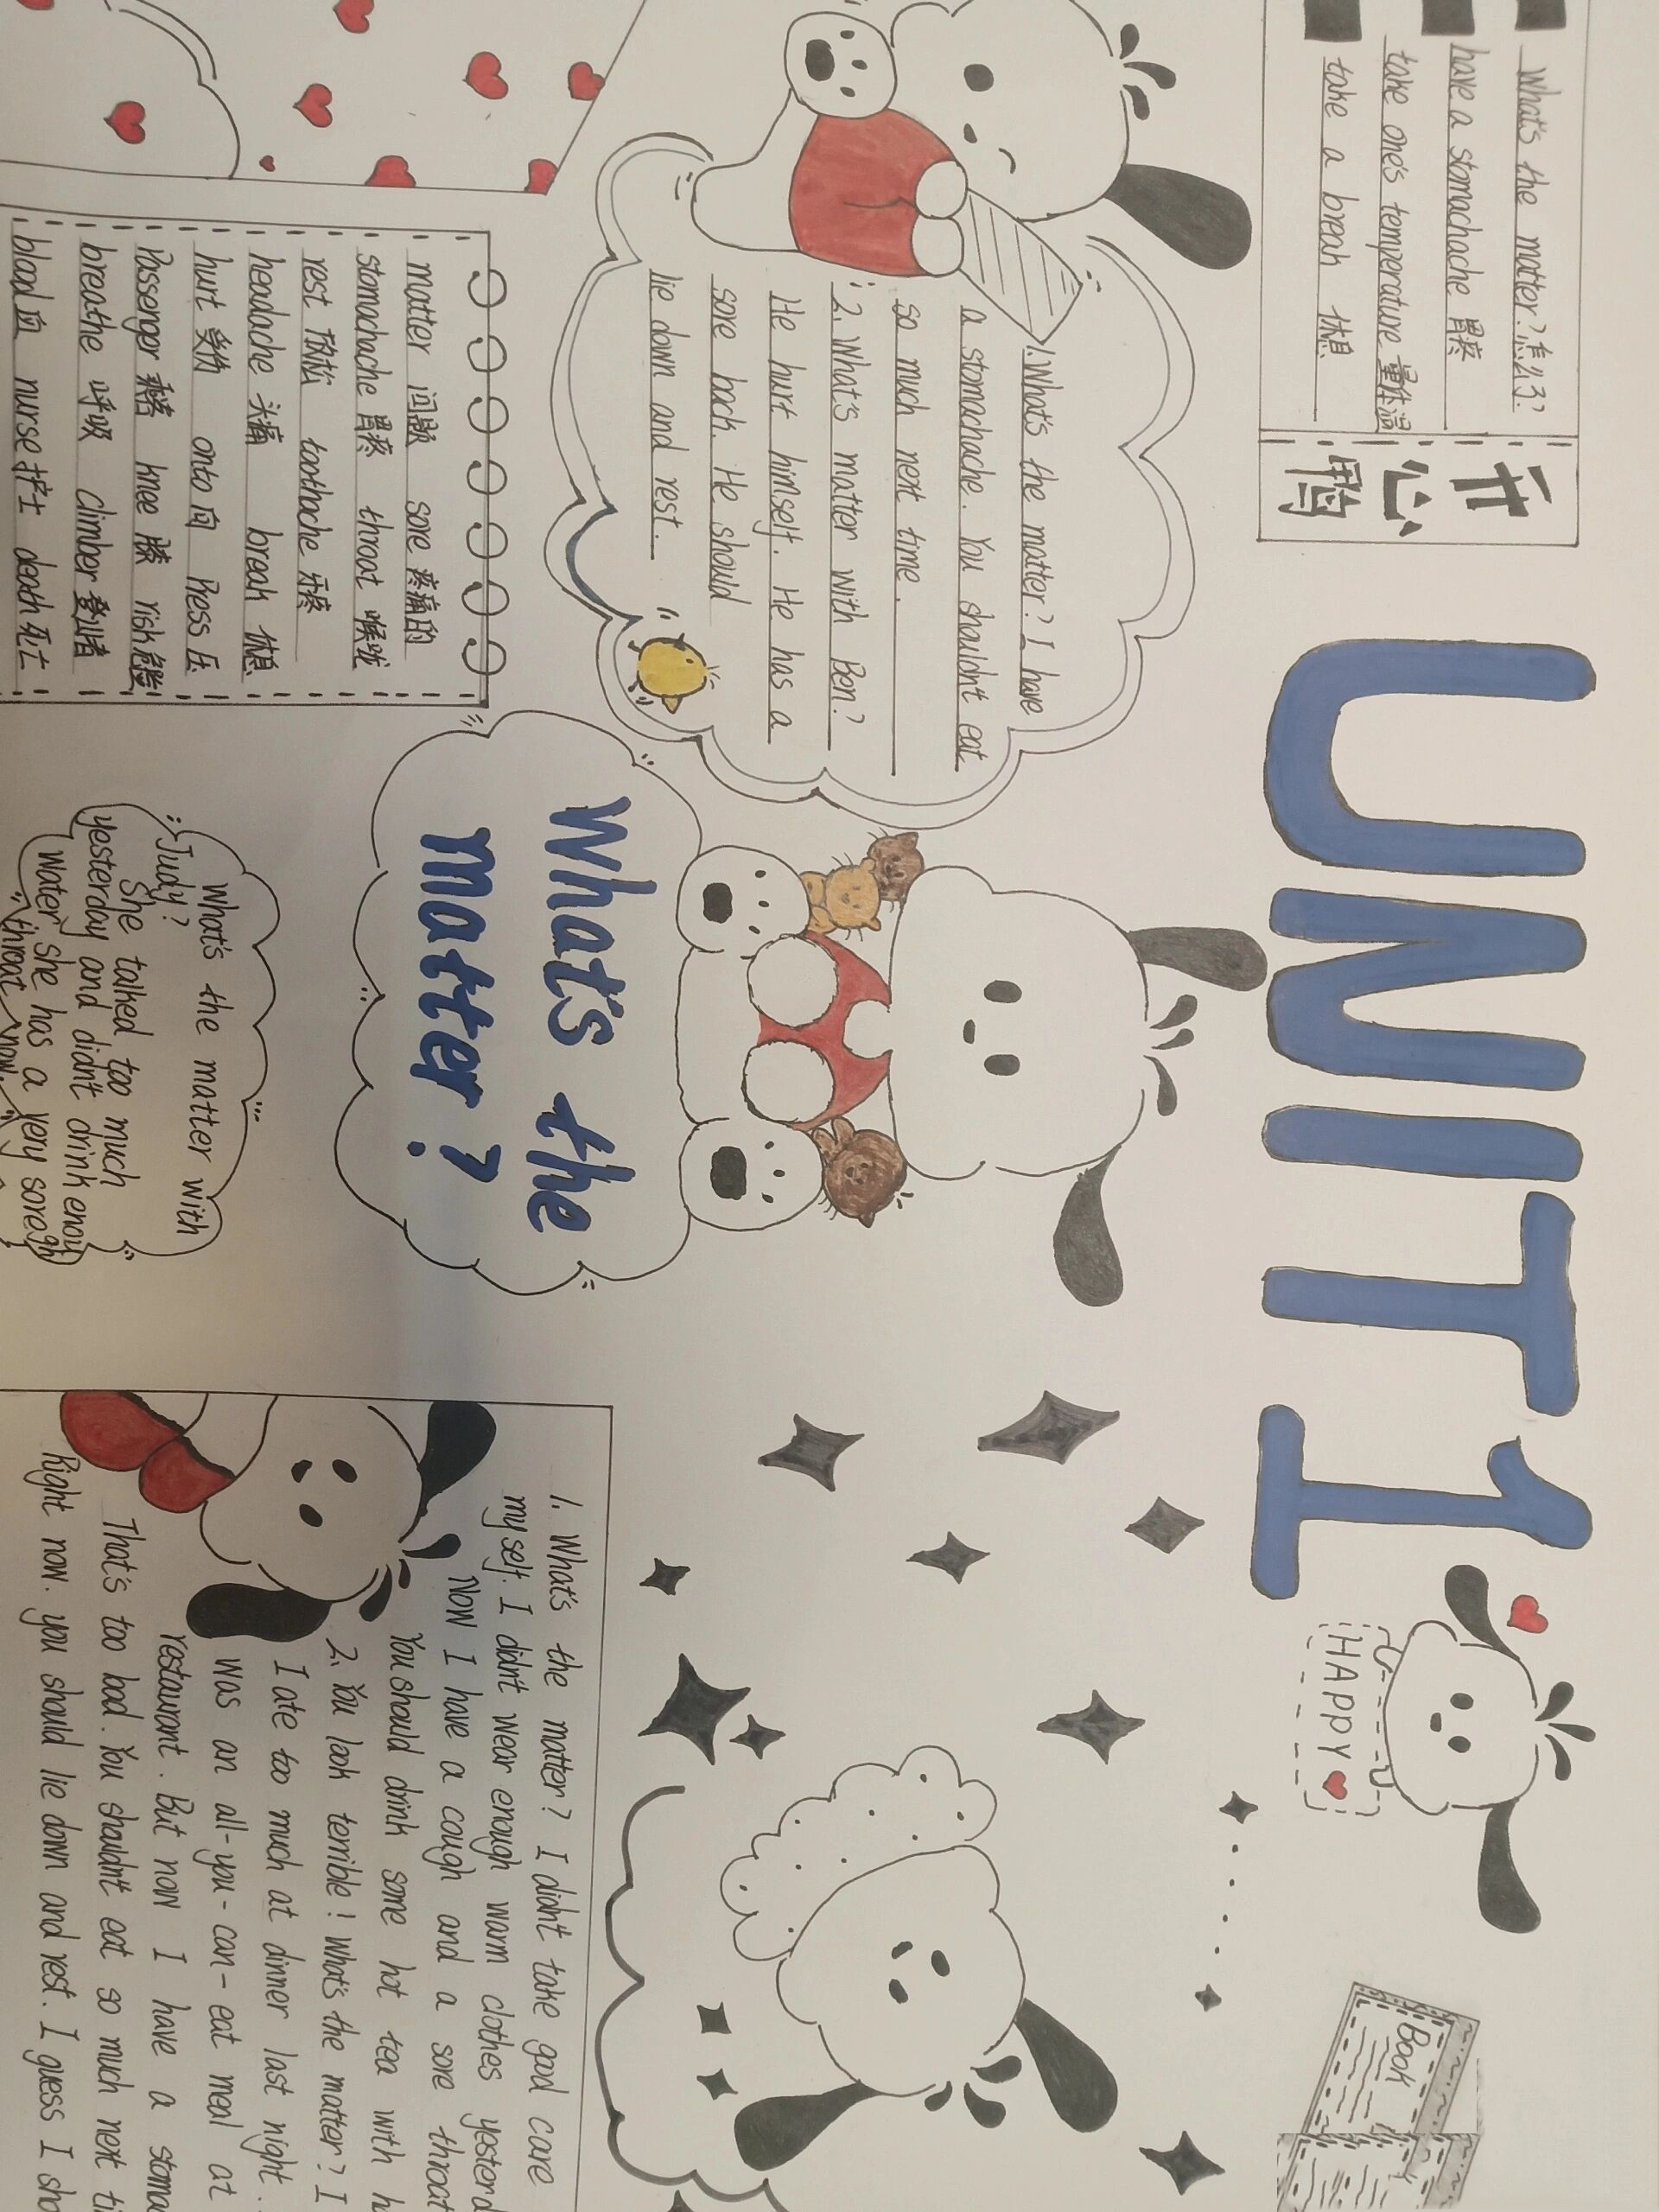 What's the matter?怎么了?
have a stomachache 胃疼
take one's temperature 量体温
take a break 休息
开
心
鸭
UNIT 1
HAPPY
Book
1.What's the matter? I have
a stomachache. You shouldn't eat
so much next time.
2. What's matter with Ben?
He hurt himself. He has a
sore back. He should
lie down and rest.
What's the
matter?
matter 问题 sore 疼痛的
stomachache 胃疼 throat 喉咙
rest 放松 toothache 牙疼
headache 头痛 break 休息
hurt 受伤 onto 向 Press 压
Passenger 乘客 knee 膝 risk 冒险
breathe 呼吸 climber 登山者
blood 血 nurse 护士 death 死亡
What's the matter with
Judy?
She talked too much
yesterday and didn't drink enough
water she has a very sore
throat now.
1. What's the matter? I didn't take good care
myself. I didn't wear enough warm clothes yesterd
Now I have a cough and a sore throat
You should drink some hot tea with h
2. You look terrible! What's the matter? I
I ate too much at dinner last night.
was an all-you-can-eat meal at
restaurant. But now I have a stoma
That's too bad. You shouldn't eat so much next ti
Right now. you should lie down and rest. I guess I sho